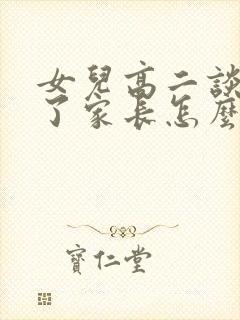 女兒高二談
了家長怎麼
寶仁堂